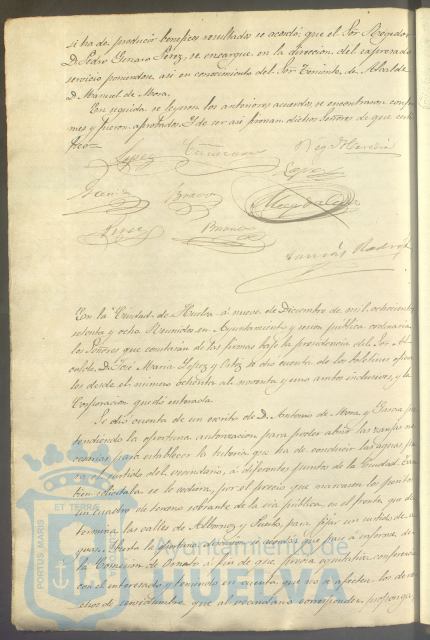 si ha de producir beneficos resultados se acordó: que el Sor. Regidor
D. Pedro Genaro Perez, se encargue en la direccion del espresado
servicio poniendose asi en conocimiento del Sor. Teniente de Alcalde
D. Manuel de Mora.
En seguida se leyeron los anteriores acuerdos, se encontraron confor
mes y fueron aprobados. Y de ser asi firman dichos Señores de que certi
fico=
Lopez
Garcia
Bravo
Perez
En la Ciudad de Huelva á nueve de Diciembre de mil ochocientos
setenta y ocho. Reunidos en Ayuntamiento y sesion pública ordinaria
los Señores que constarán de las firmas bajo la presidencia del Sor. Al
calde, D. José Maria Lopez y Ortiz, se dió cuenta de los boletines oficia
les desde el número ochenta al noventa y uno ambos inclusives, y la
Corporacion quedó enterada.
Se dió cuenta de un escrito de D. Antonio de Mora y Garcia pre
tendiendo la oportuna autorizacion para poder abrir las zanjas ne
cesarias para establecer la tuberia que ha de conducir las aguas pa
ra el surtido del vecindario, á diferentes puntos de la Ciudad. Tam
bien solicitaba se le cediera, por el precio que marcasen los peritos
un cuadro de terreno sobrante de la via pública, en el frente que de
termina las calles de Albornoz y Puerto, para fijar un surtidor de a
guas. Abierta la oportuna discusion se acordó: que pase á informe de
la Comision de Ornato á fin de que, previa equitativa conferencia
con el interesado y teniendo en cuenta que no se afecten los dere
chos de servidumbre que al vecindario corresponden, proponga,
PORTUS MARIS
ET TERRÆ
Ayuntamiento de
HUELVA